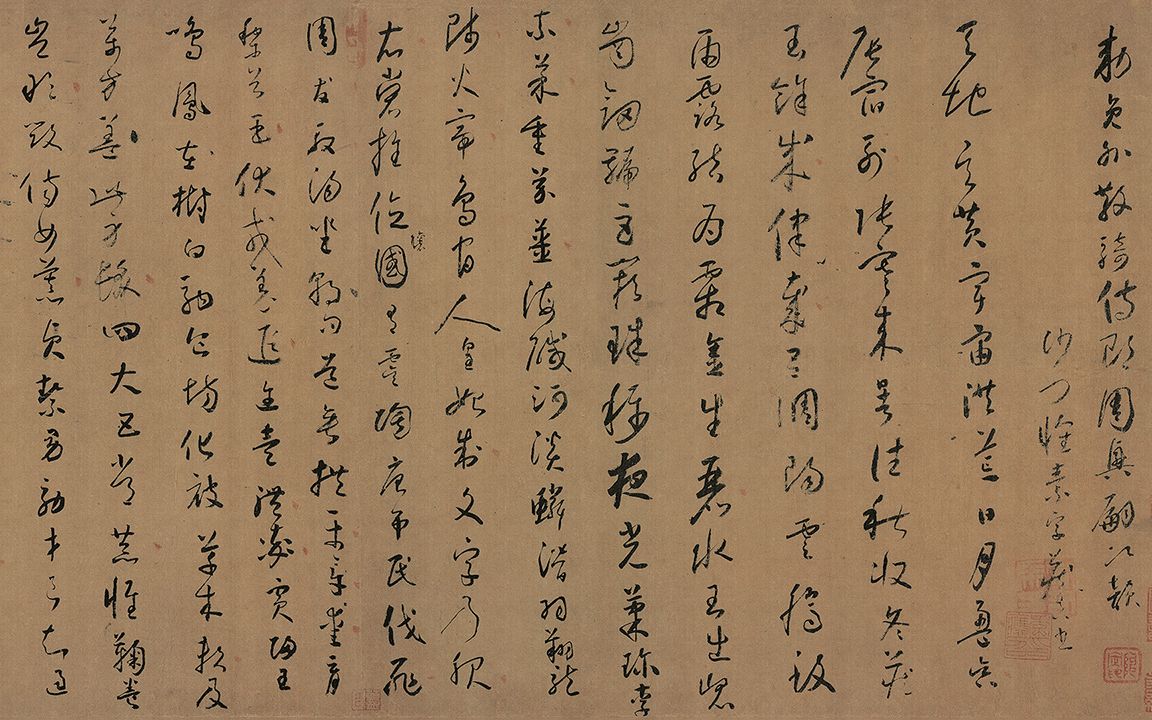 勅員外散騎侍郎周興嗣次韻
沙門懷素字藏真書
天地玄黃宇宙洪荒日月盈昃
辰宿列張寒來暑往秋收冬藏
閏餘成律歲呂調陽雲騰致
雨露結為霜金生麗水玉出崑
崗劍號巨闕珠稱夜光菓珍李
柰菜重芥薑海鹹河淡鱗潛羽翔龍
師火帝鳥官人皇始制文字乃服
衣裳推位讓國有虞陶唐弔民伐罪
周發殷湯坐朝問道垂拱平章愛育
黎首臣伏戎羌遐迩壹體率賓歸王
鳴鳳在樹白駒食場化被草木賴及
萬方蓋此身髮四大五常恭惟鞠養
豈敢毀傷女慕貞潔男效才良知過